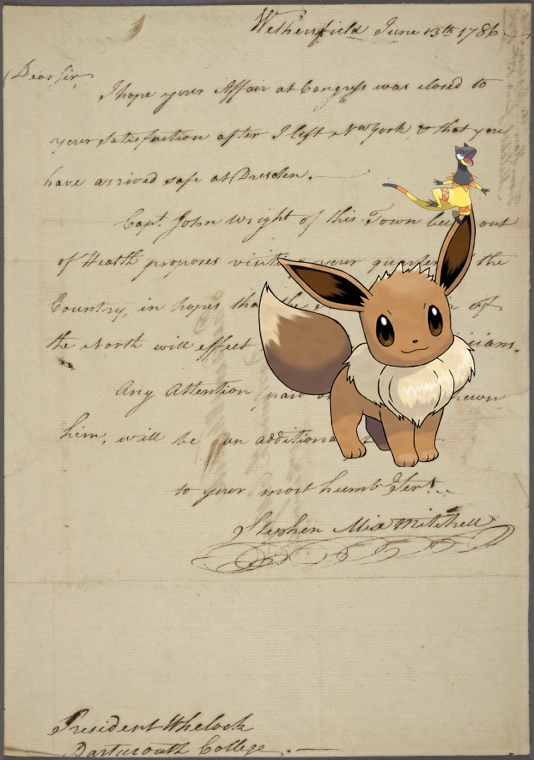 Wethersfield June 13th 1786
Dear Sir,
I hope your Affair at Congress was closed to
your satisfaction after I left New York, & that you
have arrived safe at Dresden.
Capt. John Wright of this Town out
of Health proposes your the
Country, in hopes of
the North will effect
Any Attention
him, will be an
to your most humb Sert.
Stephen Mix Mitchell
President Whelock
Dartmouth College.